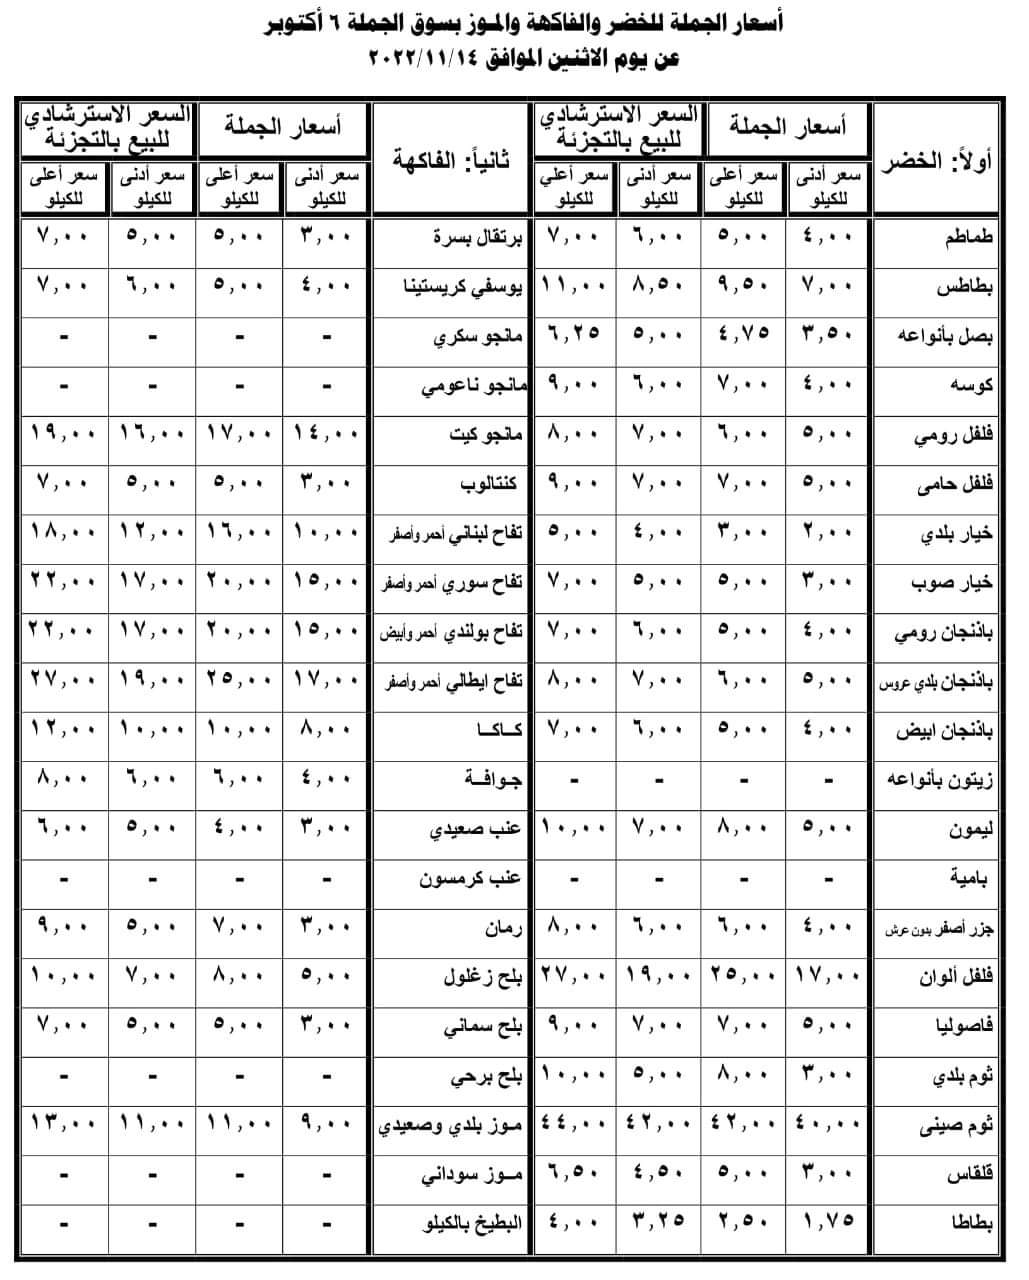 أسعار الجملة للخضر والفاكهة والموز بسوق الجملة ٦ أكتوبر
عن يوم الاثنين الموافق ٢٠٢٢/١١/١٤
أولاً: الخضر أسعار الجملة السعر الاسترشادي للبيع بالتجزئة ثانياً: الفاكهة أسعار الجملة السعر الاسترشادي للبيع بالتجزئة
سعر أدنى للكيلو سعر أعلى للكيلو سعر أدنى للكيلو سعر أعلي للكيلو سعر أدنى للكيلو سعر أعلى للكيلو سعر أدنى للكيلو سعر أعلى للكيلو
طماطم ٤,٠٠ ٥,٠٠ ٦,٠٠ ٧,٠٠ برتقال بسرة ٣,٠٠ ٥,٠٠ ٥,٠٠ ٧,٠٠
بطاطس ٧,٠٠ ٩,٥٠ ٨,٥٠ ١١,٠٠ يوسفي كريستينا ٤,٠٠ ٥,٠٠ ٦,٠٠ ٧,٠٠
بصل بأنواعه ٣,٥٠ ٤,٧٥ ٥,٠٠ ٦,٢٥ مانجو سكري - - - -
كوسه ٤,٠٠ ٧,٠٠ ٦,٠٠ ٩,٠٠ مانجو ناعومي - - - -
فلفل رومي ٥,٠٠ ٦,٠٠ ٧,٠٠ ٨,٠٠ مانجو كيت ١٤,٠٠ ١٧,٠٠ ١٦,٠٠ ١٩,٠٠
فلفل حامى ٥,٠٠ ٧,٠٠ ٧,٠٠ ٩,٠٠ كنتالوب ٣,٠٠ ٥,٠٠ ٥,٠٠ ٧,٠٠
خيار بلدي ٢,٠٠ ٣,٠٠ ٤,٠٠ ٥,٠٠ تفاح لبناني أحمر وأصفر ١٠,٠٠ ١٦,٠٠ ١٢,٠٠ ١٨,٠٠
خيار صوب ٣,٠٠ ٥,٠٠ ٥,٠٠ ٧,٠٠ تفاح سوري أحمر وأصفر ١٥,٠٠ ٢٠,٠٠ ١٧,٠٠ ٢٢,٠٠
باذنجان رومي ٤,٠٠ ٥,٠٠ ٦,٠٠ ٧,٠٠ تفاح بولندي أحمر وأبيض ١٥,٠٠ ٢٠,٠٠ ١٧,٠٠ ٢٢,٠٠
باذنجان بلدي عروس ٥,٠٠ ٦,٠٠ ٧,٠٠ ٨,٠٠ تفاح ايطالي أحمر وأصفر ١٧,٠٠ ٢٥,٠٠ ١٩,٠٠ ٢٧,٠٠
باذنجان ابيض ٤,٠٠ ٥,٠٠ ٦,٠٠ ٧,٠٠ كـاكـا ٨,٠٠ ١٠,٠٠ ١٠,٠٠ ١٢,٠٠
زيتون بأنواعه - - - - جـوافـة ٤,٠٠ ٦,٠٠ ٦,٠٠ ٨,٠٠
ليمون ٥,٠٠ ٨,٠٠ ٧,٠٠ ١٠,٠٠ عنب صعيدي ٣,٠٠ ٤,٠٠ ٥,٠٠ ٦,٠٠
بامية - - - - عنب كرمسون - - - -
جزر أصفر بدون عرش ٤,٠٠ ٦,٠٠ ٦,٠٠ ٨,٠٠ رمان ٣,٠٠ ٧,٠٠ ٥,٠٠ ٩,٠٠
فلفل ألوان ١٧,٠٠ ٢٥,٠٠ ١٩,٠٠ ٢٧,٠٠ بلح زغلول ٥,٠٠ ٨,٠٠ ٧,٠٠ ١٠,٠٠
فاصوليا ٥,٠٠ ٧,٠٠ ٧,٠٠ ٩,٠٠ بلح سماني ٣,٠٠ ٥,٠٠ ٥,٠٠ ٧,٠٠
ثوم بلدي ٣,٠٠ ٨,٠٠ ٥,٠٠ ١٠,٠٠ بلح برحي - - - -
ثوم صينى ٤٠,٠٠ ٤٢,٠٠ ٤٢,٠٠ ٤٤,٠٠ مـوز بلدي وصعيدي ٩,٠٠ ١١,٠٠ ١١,٠٠ ١٣,٠٠
قلقاس ٣,٠٠ ٥,٠٠ ٤,٥٠ ٦,٥٠ مـوز سوداني - - - -
بطاطا ١,٧٥ ٢,٥٠ ٣,٢٥ ٤,٠٠ البطيخ بالكيلو - - - -